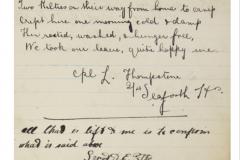 Two Kilties on their way from home to camp
Crept here one morning cold & damp
Then rested, washed, & hunger free,
We took our leave, quite happy we.
Cpl L. Thompstone
2/5th Seaforth Hrs.
all that is left me is to confirm
what is said above